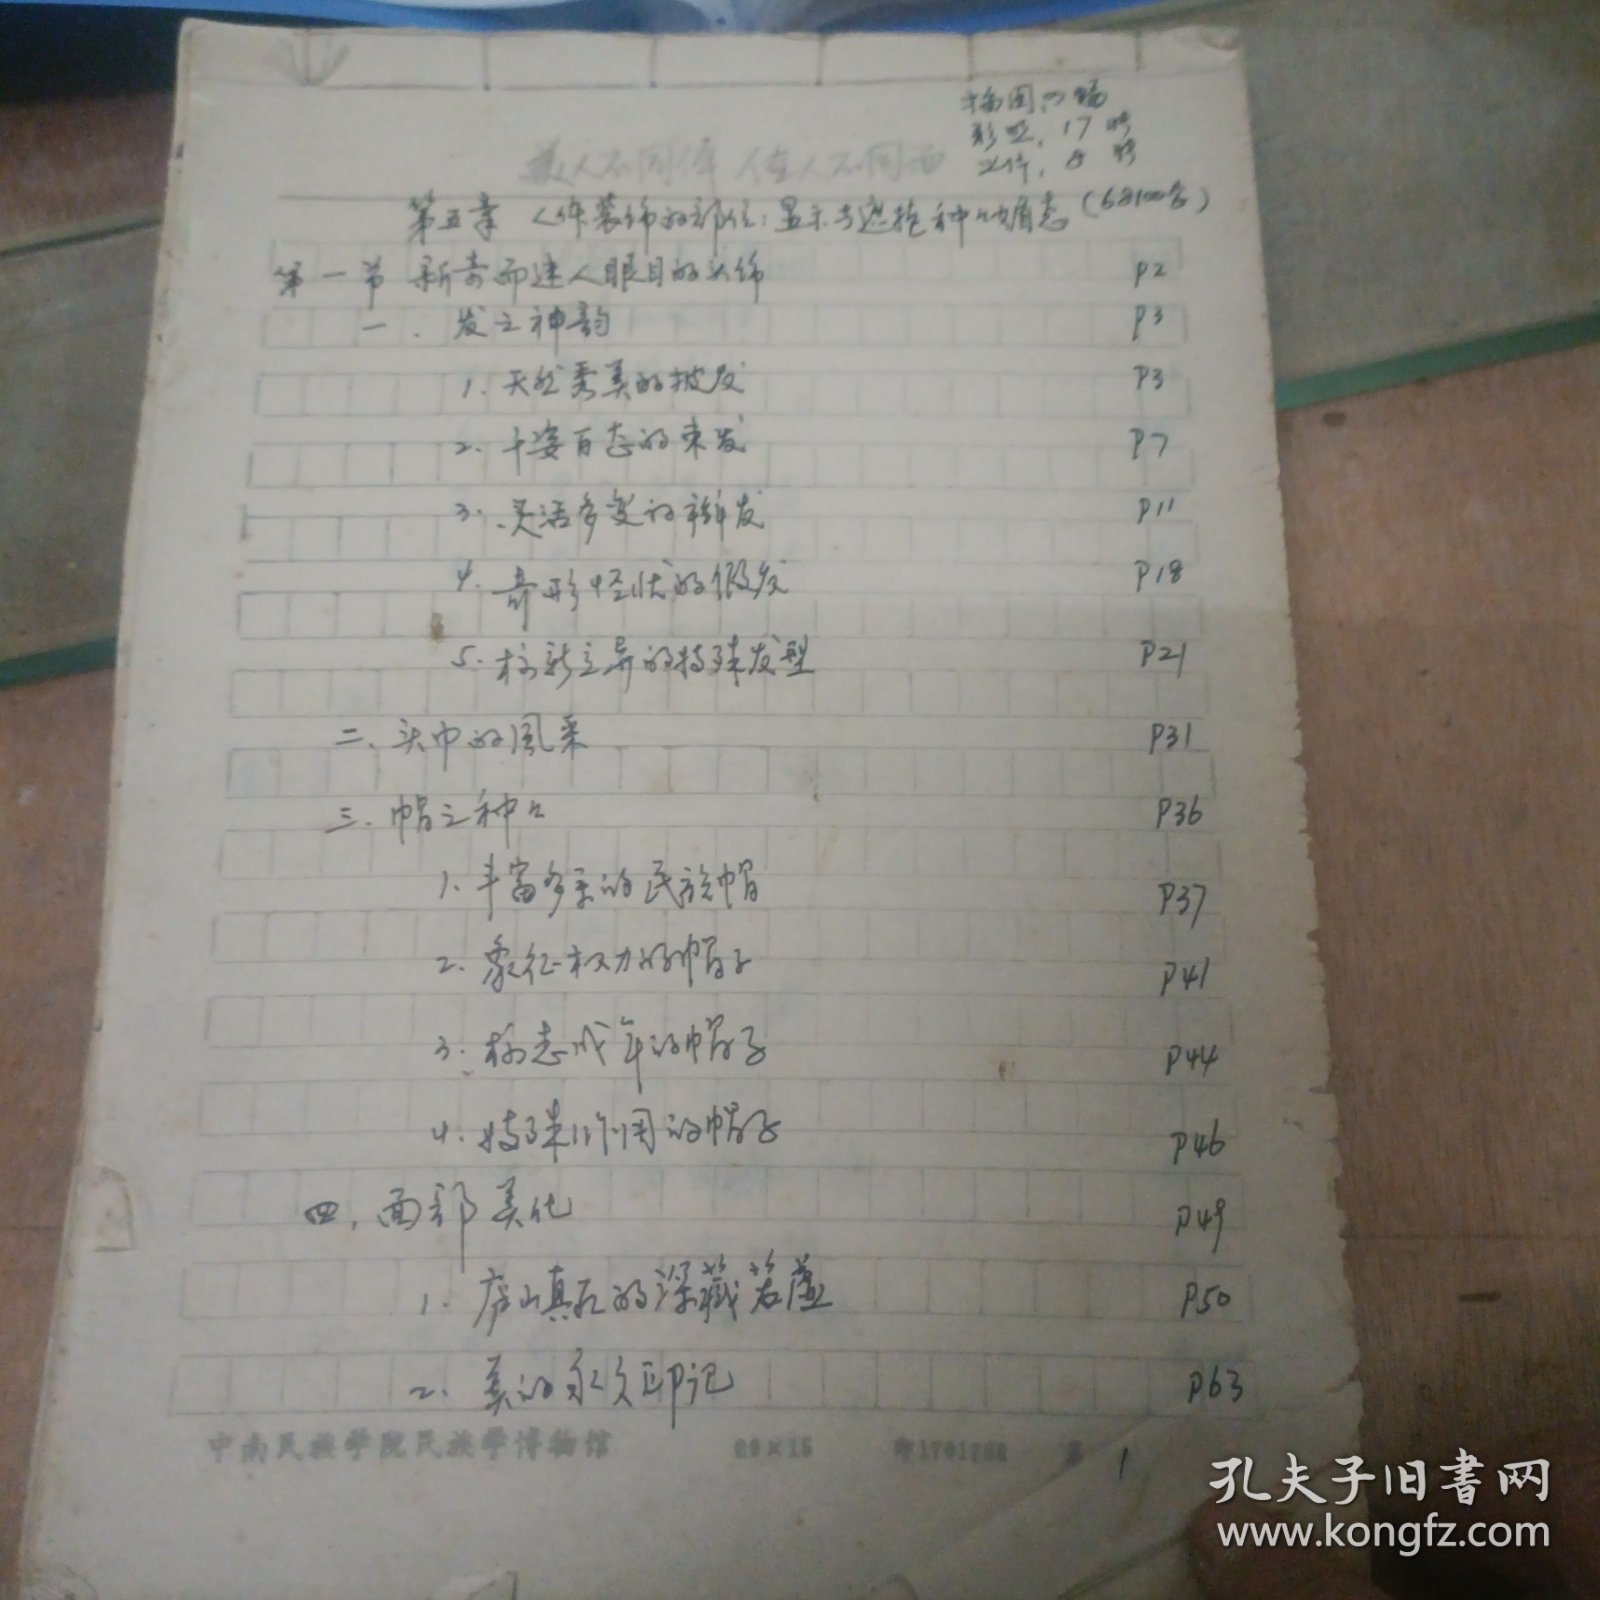 插图: 幅
彩照, 17
8
美人不同体 佳人不同面
第五章 人体装饰的部位:显示与遮掩种种眉志 (68100字)
第一节 新奇而迷人眼目的头饰 P2
一. 发之神韵 P3
1. 天然秀美的披发 P3
2. 千姿百态的束发 P7
3. 灵活多变的辫发 P11
4. 奇形怪状的假发 P18
5. 标新立异的特殊发型 P21
二、头巾的風采 P31
三. 帽之种々 P36
1. 丰富多采的民族帽 P37
2. 象征权力的帽子 P41
3. 标志成年的帽子 P44
4. 特殊作用的帽子 P46
四, 面部美化 P49
1. 庐山真面的深藏若虚 P50
2. 美的永久印记 P63
中南民族学院民族学博物馆 20×15 第 1
孔夫子旧书网
www.kongfz.com